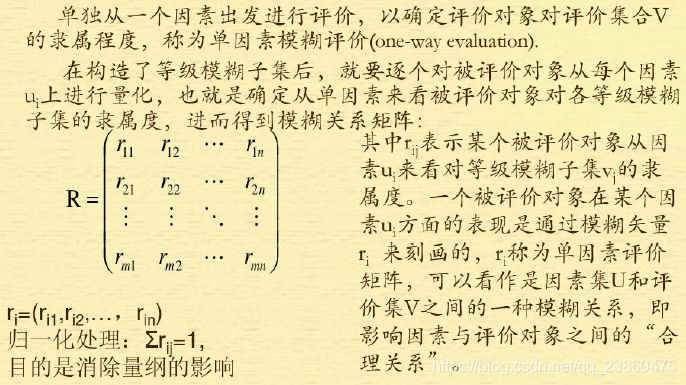 单独从一个因素出发进行评价，以确定评价对象对评价集合V
的隶属程度，称为单因素模糊评价(one-way evaluation).
在构造了等级模糊子集后，就要逐个对被评价对象从每个因素
ui上进行量化，也就是确定从单因素来看被评价对象对各等级模糊
子集的隶属度，进而得到模糊关系矩阵：
r11 r12 ⋯ r1n
r21 r22 ⋯ r2n
R =
⋮ ⋮ ⋱ ⋮
rm1 rm2 ⋯ rmn
其中rij表示某个被评价对象从因
素ui来看对等级模糊子集vj的隶
属度。一个被评价对象在某个因
素ui方面的表现是通过模糊矢量
ri 来刻画的，ri称为单因素评价
矩阵，可以看作是因素集U和评
价集V之间的一种模糊关系，即
影响因素与评价对象之间的“合
理关系”。
ri=(ri1,ri2,…，rin)
归一化处理：Σrij=1,
目的是消除量纲的影响
https://blog.csdn.net/qq_23860475